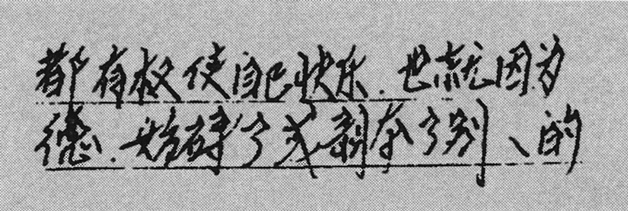 都有权使自己快乐.也就因为
德.妨碍了或剥夺了别、的